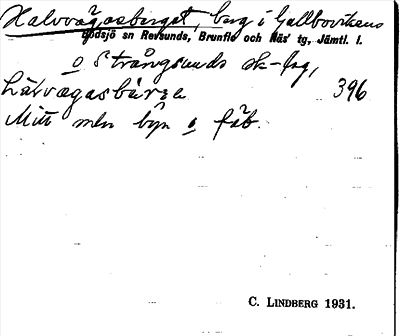 Halvvägasberget, berg i Gallbovikens
Bodsjö sn Revsunds, Brunflo och Näs' tg, Jämtl. l.
o Strångsunds sk-lag,
hârvägasbärje 396
Mitt mln byn o fäb.
C. LINDBERG 1931.